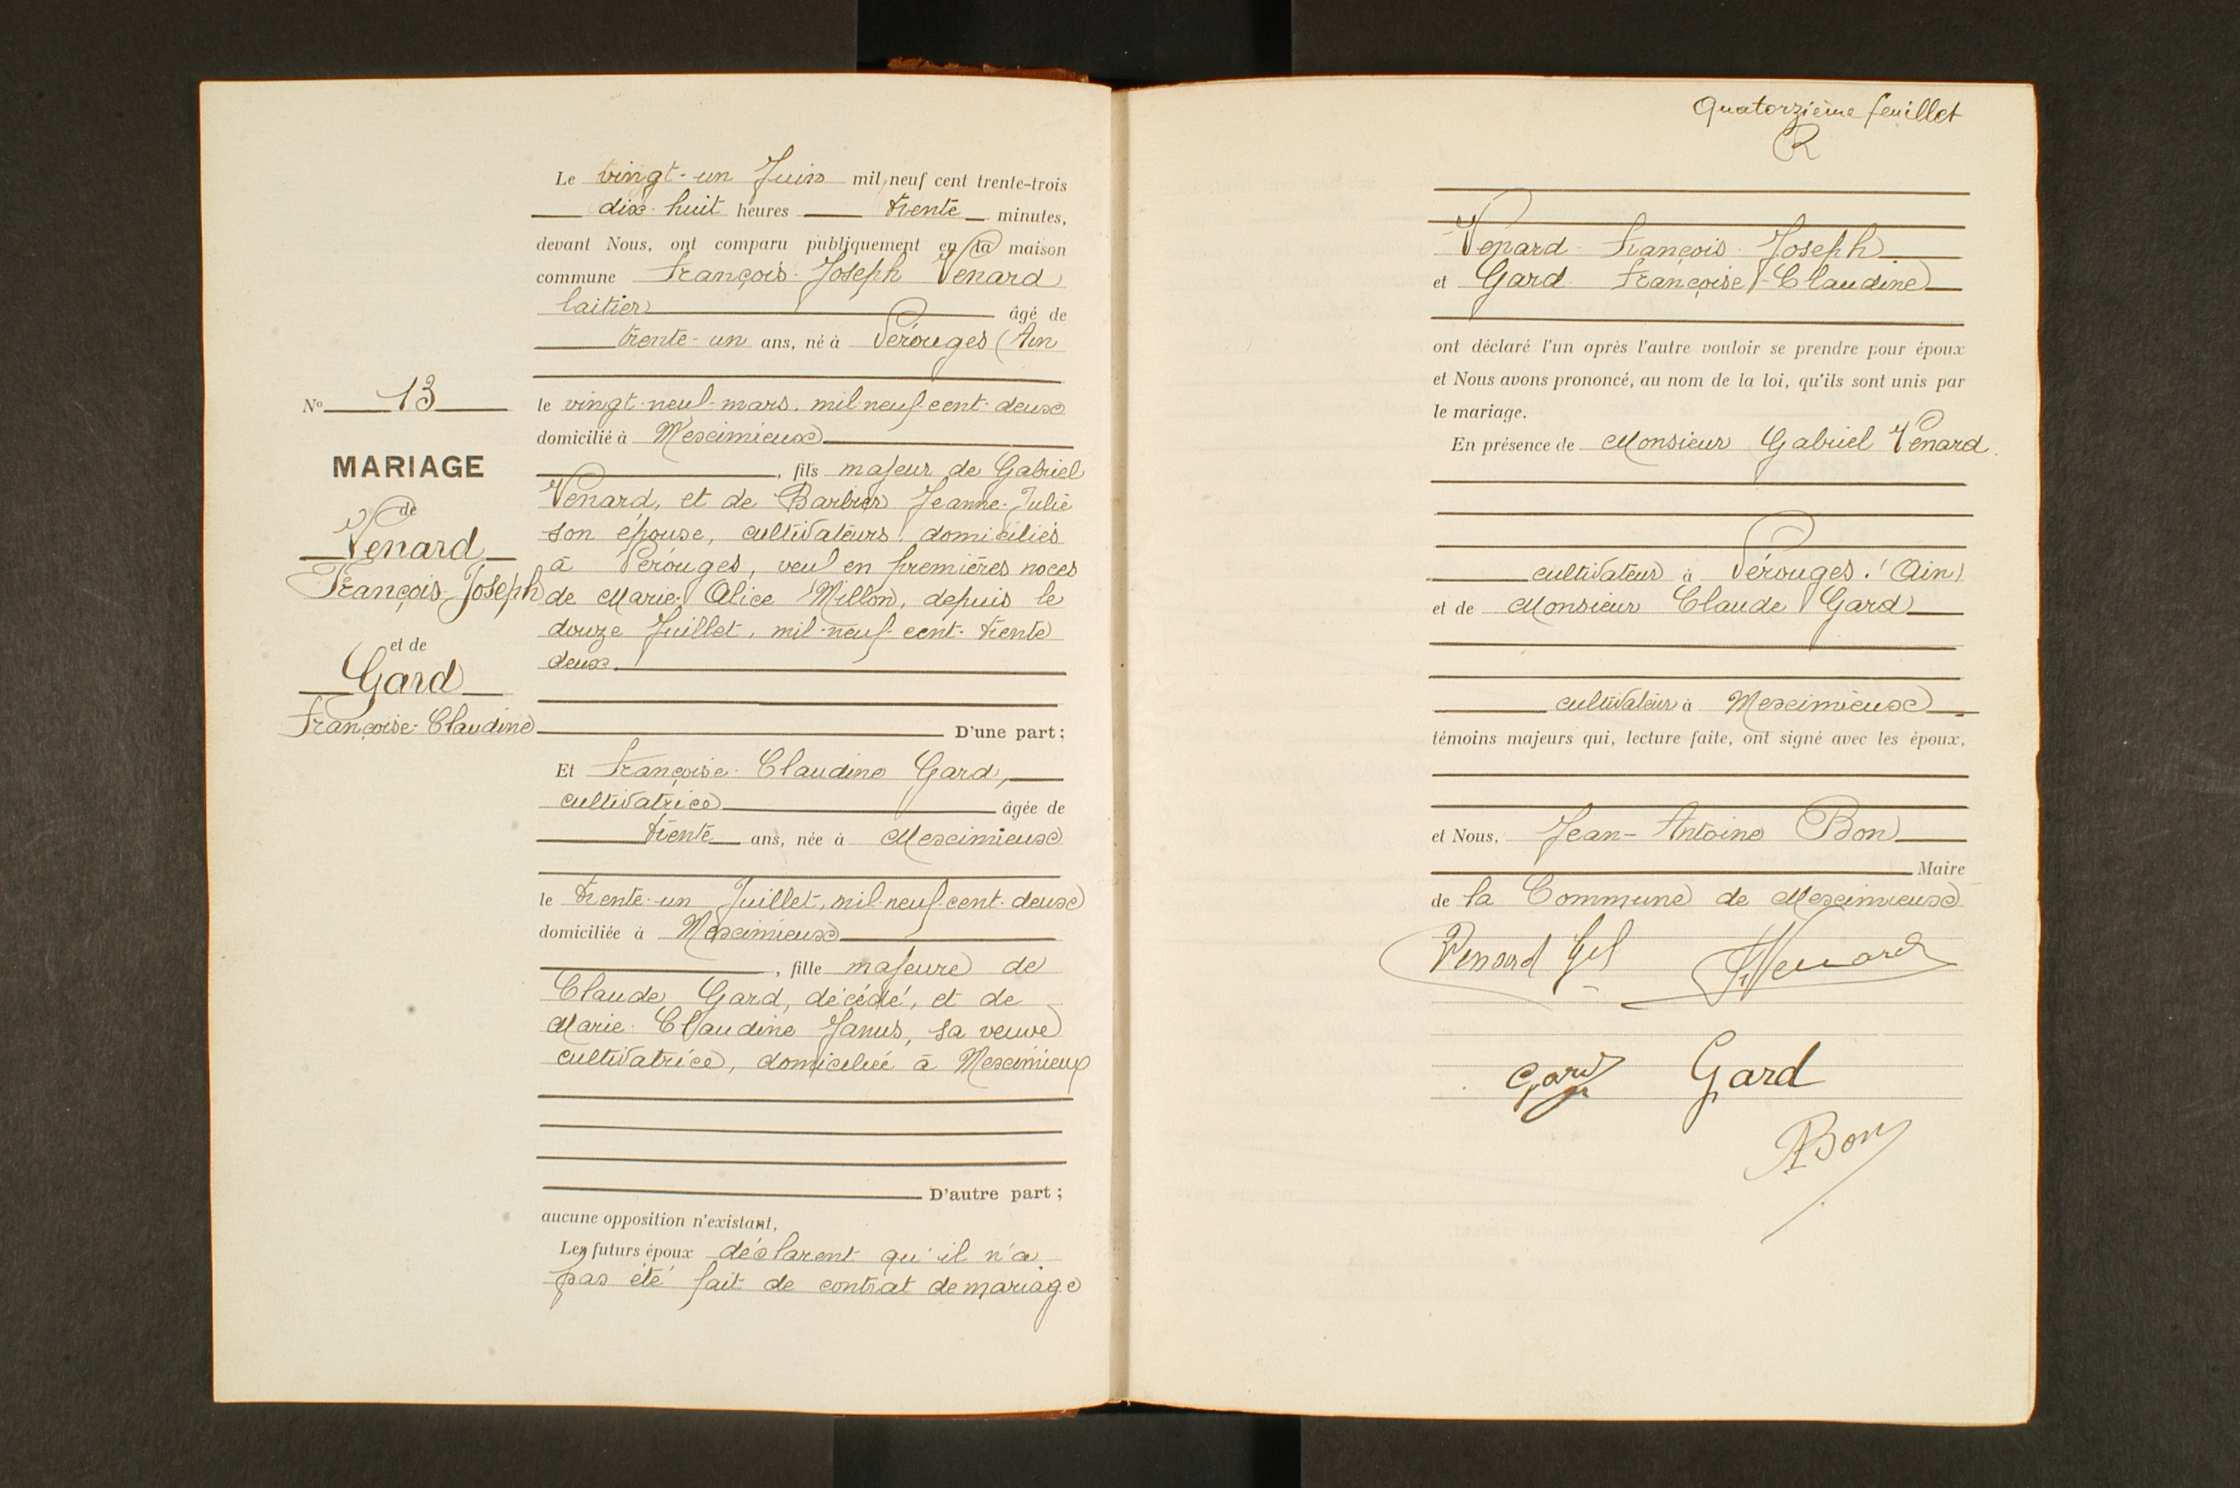 Le vingt-un Juin mil neuf cent trente-trois
dix-huit heures trente minutes,
devant Nous, ont comparu publiquement en la maison
commune François-Joseph Venard
laitier âgé de
trente-un ans, né à Pérouges (Ain
le vingt-neuf-mars, mil-neuf-cent-deux
domicilié à Meximieux
, fils majeur de Gabriel
Venard, et de Barbier Jeanne-Julie
son épouse, cultivateurs domiciliés
à Pérouges, veuf en premières noces
de Marie-Alice Millon, depuis le
douze Juillet, mil-neuf-cent-trente
deux.
D'une part;
N° 13
MARIAGE
de
Venard
François-Joseph
et de
Gard
Françoise-Claudine
Et Françoise-Claudine Gard,
cultivatrice âgée de
trente ans, née à Meximieux
le trente-un Juillet, mil-neuf-cent-deux
domiciliée à Meximieux
, fille majeure de
Claude Gard, décédé, et de
Marie-Claudine Janus, sa veuve
cultivatrice, domiciliée à Meximieux
D'autre part;
aucune opposition n'existant,
Les futurs époux déclarent qu'il n'a
pas été fait de contrat de mariage
Quatorzième feuillet
Venard François-Joseph
et Gard Françoise-Claudine
ont déclaré l'un après l'autre vouloir se prendre pour époux
et Nous avons prononcé, au nom de la loi, qu'ils sont unis par
le mariage.
En présence de Monsieur Gabriel Venard.
cultivateur à Pérouges. (Ain)
et de Monsieur Claude Gard
cultivateur à Meximieux
témoins majeurs qui, lecture faite, ont signé avec les époux,
et Nous, Jean-Antoine Bon
Maire
de la Commune de Meximieux
Venard Gel Venard
Gard Gard
Bon